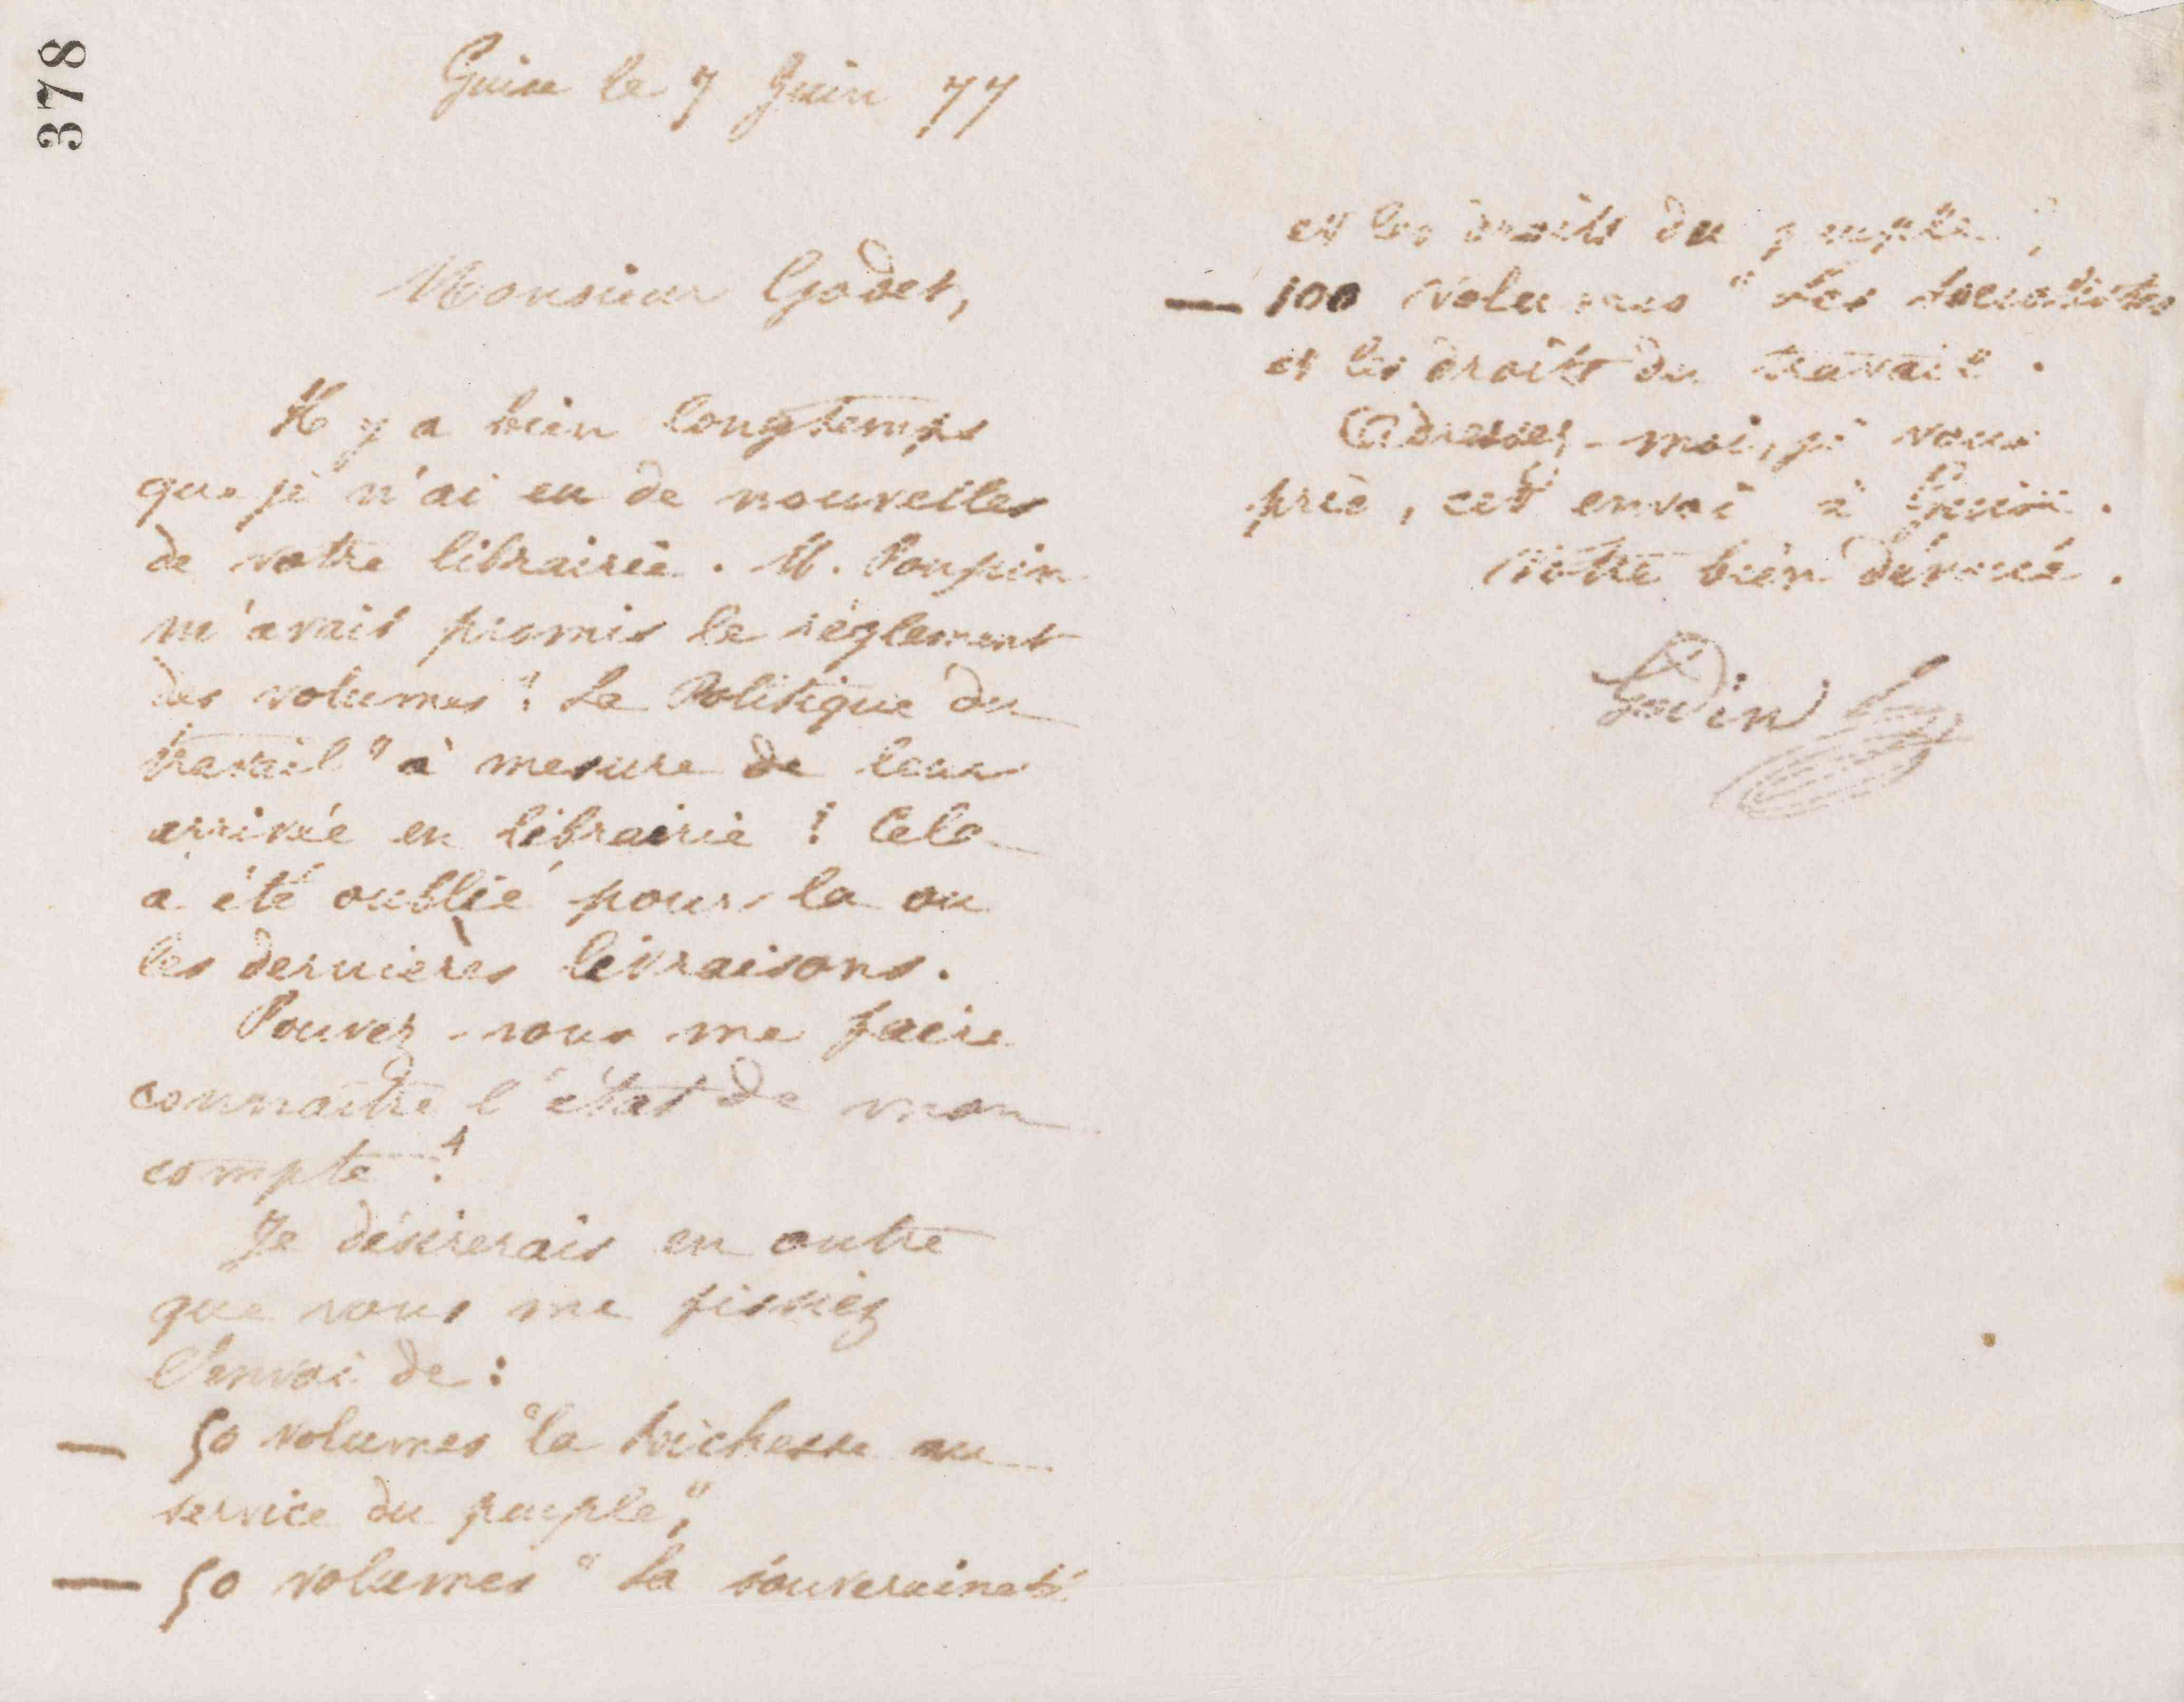 378
Guise le 7 Juin 77
Monsieur Godet,
Il y a bien longtemps
que je n'ai eu de nouvelles
de votre librairie. M. Poupin
m'avait promis le règlement
des volumes "La Politique du
travail" à mesure de leur
arrivée en librairie ! Cela
a été oublié pour la ou
les dernières livraisons.
Pouvez-vous me faire
connaître l'état de mon
compte ?
Je désirerais en outre
que vous me fissiez
l'envoi de :
— 50 volumes "la richesse au
service du peuple",
— 50 volumes "La souveraineté
et les droits du peuple",
— 100 volumes "Les socialistes
et les droits du travail".
Adressez-moi, je vous
prie, cet envoi à Guise.
Votre bien dévoué.
Godin